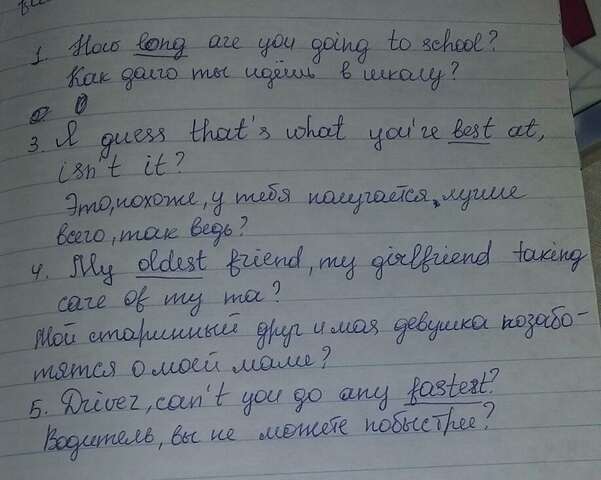 1. How long are you going to school?
Как долго ты идёшь в школу?
3. I guess that's what you're best at,
isn't it?
Это, похоже, у тебя получается лучше
всего, так ведь?
4. My oldest friend, my girlfriend taking
care of my ma?
Мой старинный друг и моя девушка позабо-
тятся о моей маме?
5. Driver, can't you go any fastest?
Водитель, вы не можете побыстрее?